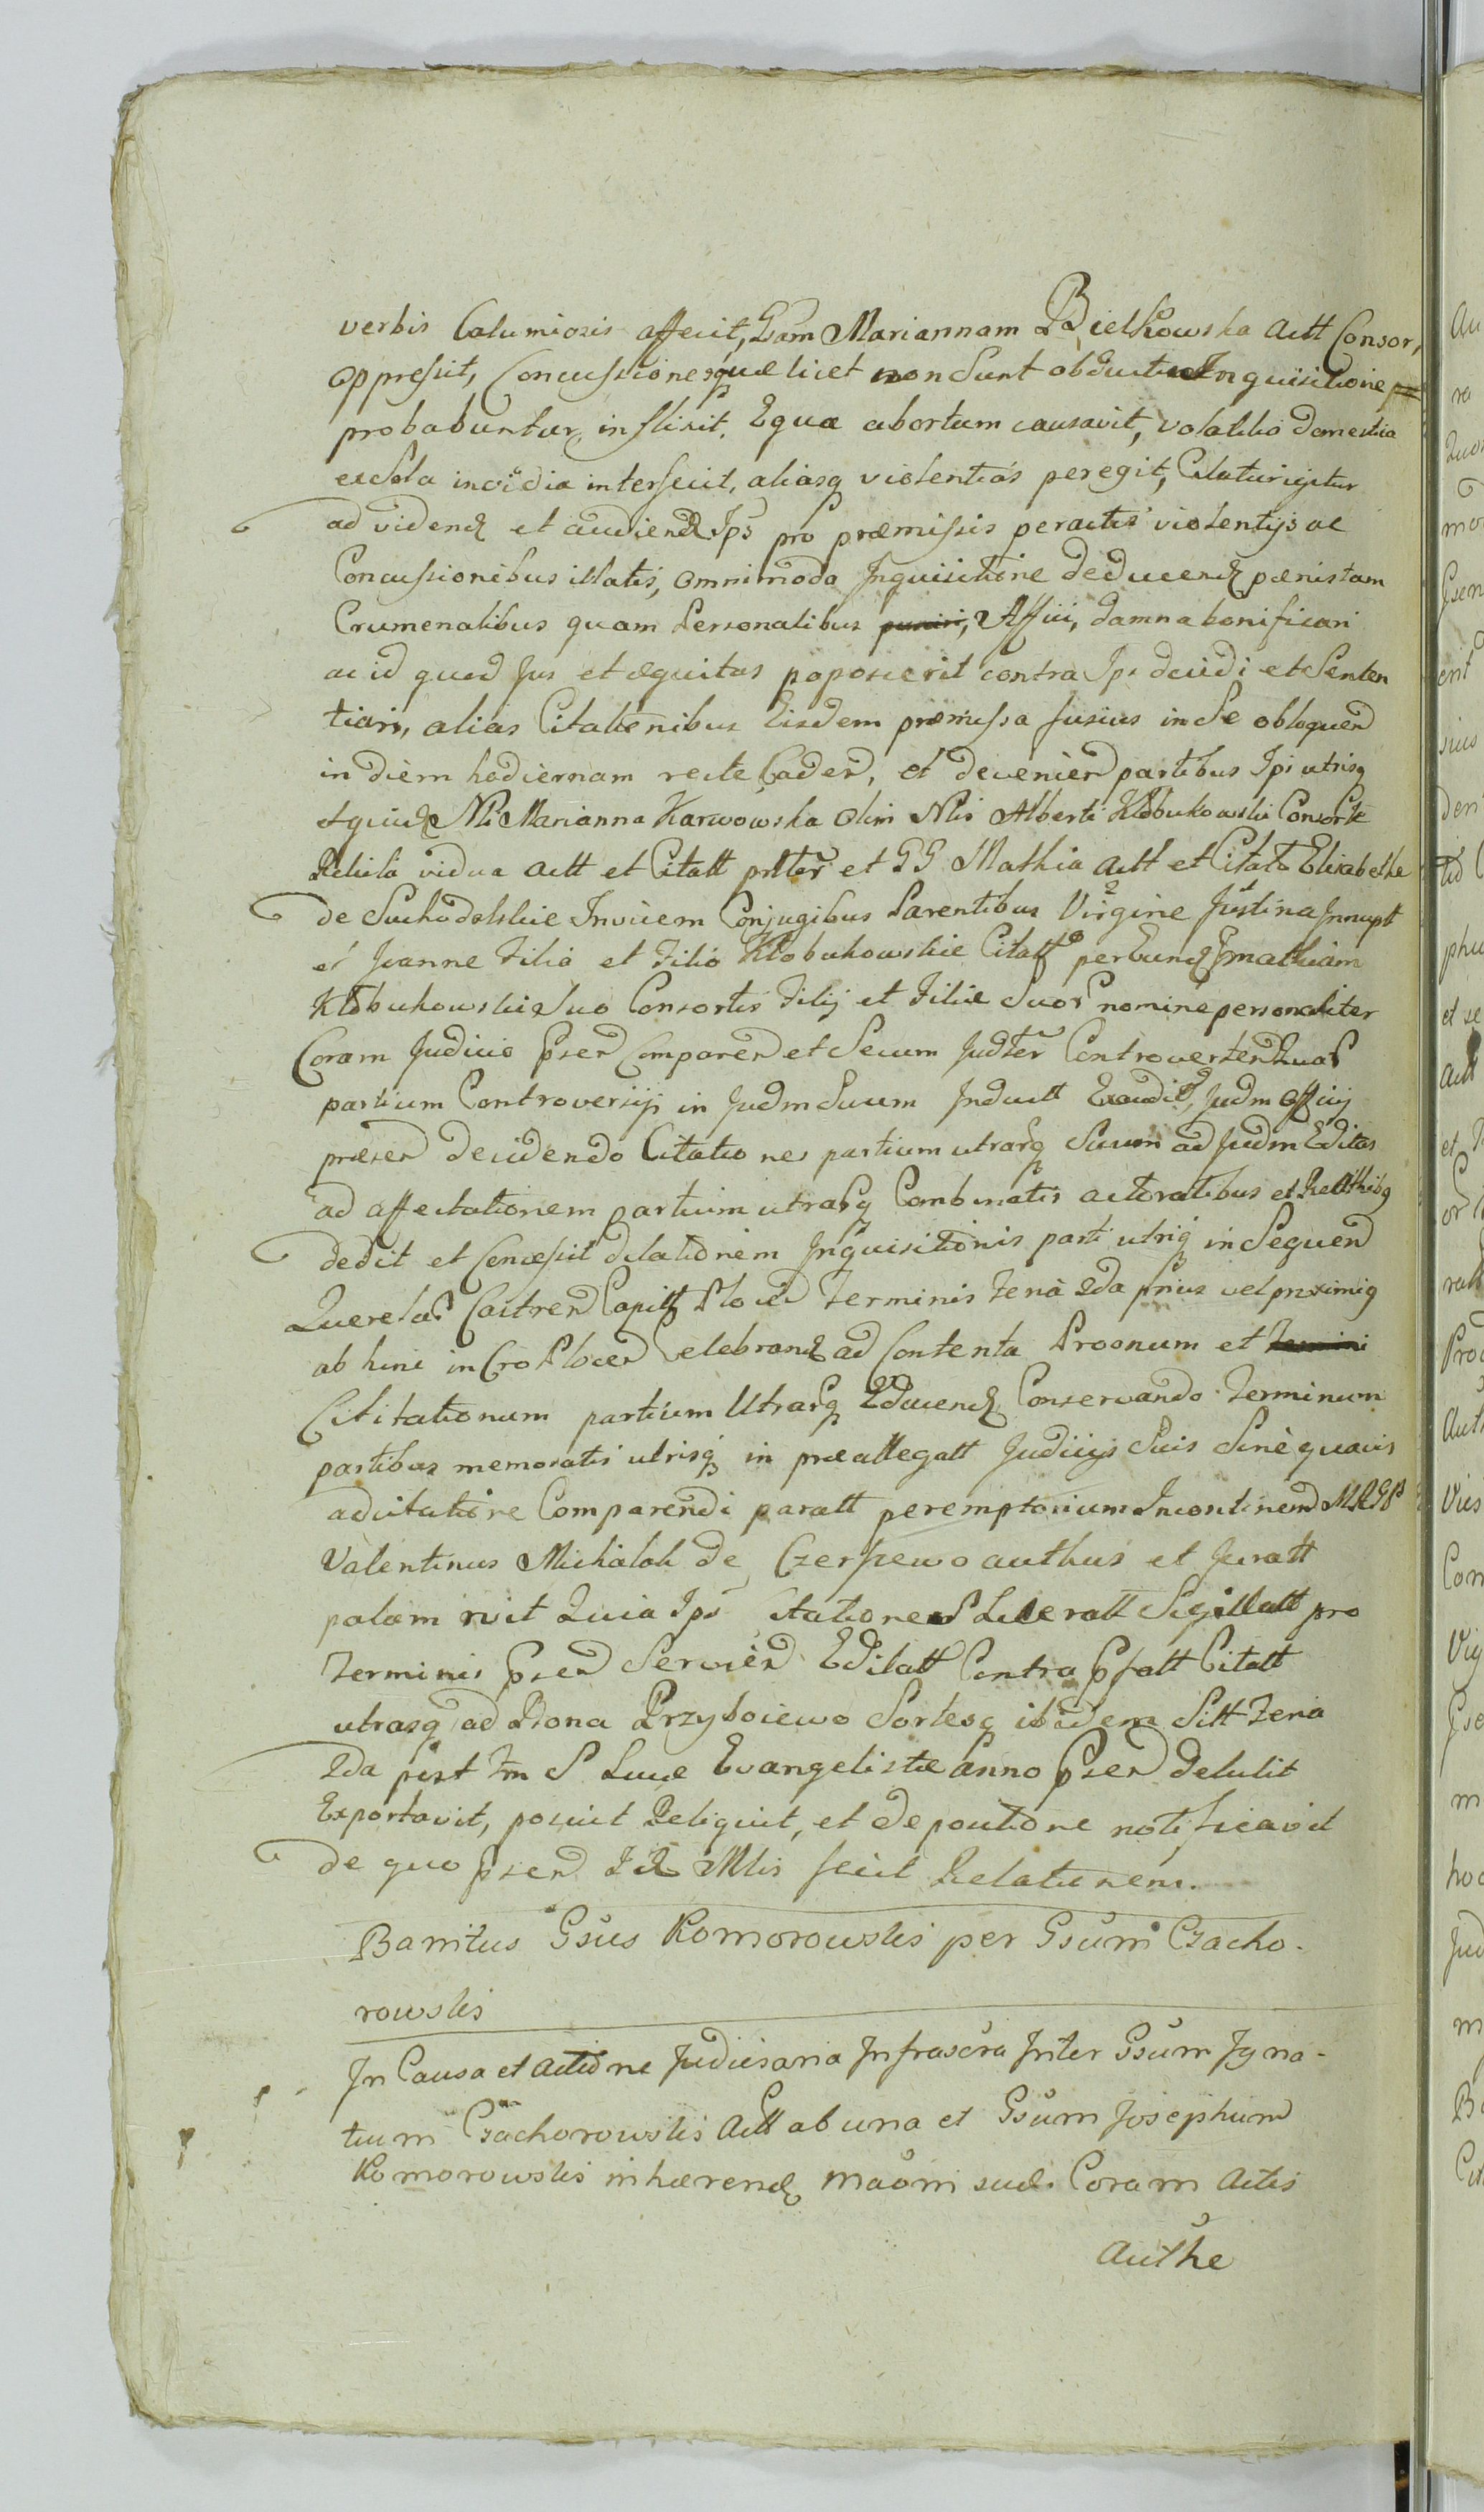 verbis Calumiosis affecit, Gsam Mariannam Bielkowska Actt Consor,
oppressit, Concussionesque licet non Sunt obductae Inquisitione
probabuntur, inflixit, Equae abortum causavit, volatilio domestica
ex Sola invidia interfecit, aliasq violentias peregit, Citatur igitur
ad vidend et audiend Ips pro praemissis peractis violentijs ac
Concussionibus illatis, omnimoda Inquisitione deducend paenis tam
Crumenalibus quam Personalibus puniri, Affici, damna bonificari
ac id quod Jus et aequitas poposcerit contra Ips decidi et Senten
tiari, alias Citationibus Eisdem praemissa fusius in Se obloquen
in diem hodiernam recte Caden, et devenien partibus Ipis utrisq
Nli Marianna Karwowska olim Nlis Alberti Kłobukowski Consorte
Relicta vidua Actt et Citatt prlter et GG Mathia Actt et Citato Elisabethe
de Suchodolskie Invicem Conjugibus Parentibus Virgine Justina Innupt
et Joanne Filia et Filio Kłobukowskie Citatt per Eund Gsm Mathiam
Kłobukowski Suo Consortis Filij et Filiae Suor nomine personaliter
Coram Judicio psen Comparen et Secum Judter Controverten Quar
partium Controversijs in Judm Suum Induct Exaudit, Judm officij
praesen decidendo Citationes partium utrarq Suum ad Judm Editas
ad affectationem partium utrarq Combinatis actoratibus et
dedit et Concessit dilationem Inquisitionis parti utriq in Sequen
Querelar Castren Capitt Plocen Terminis Feria 2da prius vel proximis
ab hinc in Cro Plocen Celebrand ad Contenta Proonum et Termini
Cititationum partium Utrarq Educend Conservando Terminum
partibus memoratis utrisq in praeallegatt Judicijs Suis Sine quavis
adcitatione Comparendi paratt peremptorium Incontinen
Valentinus Michalak de Czerpewo authus et Juratt
palam rvit Quia Ips Citationes Literatt Sigillatt pro
Terminis psen Servien Editatt Contra psatt Citatt
utrasq ad Bona Przyboiewo Sortesq ibidem Sitt Feria
2da post Fm S Lucae Evangelistae Anno psen detulit
Exportavit, posuit Reliquit, et de positione notificavit
de quo psen Mlis fecit Relationem.
Banitus Gsus Komorowski per Gsum Czacho-
rowski
In Causa et Actione Judiciaria Infrascra Inter Gsum Igna-
tium Czachorowski Actt ab una et Gsum Josephum
Komorowski inhaerend maoni suae Coram Actis
Authe